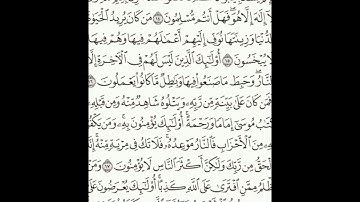 لَّآ إِلَٰهَ إِلَّا هُوَ فَهَلْ أَنتُم مُّسْلِمُونَ ١٤ مَن كَانَ يُرِيدُ ٱلْحَيَوٰةَ
ٱلدُّنْيَا وَزِينَتَهَا نُوَفِّ إِلَيْهِمْ أَعْمَٰلَهُمْ فِيهَا وَهُمْ فِيهَا
لَا يُبْخَسُونَ ١٥ أُو۟لَٰٓئِكَ ٱلَّذِينَ لَيْسَ لَهُمْ فِى ٱلْءَاخِرَةِ إِلَّا
ٱلنَّارُ وَحَبِطَ مَا صَنَعُوا۟ فِيهَا وَبَٰطِلٌ مَّا كَانُوا۟ يَعْمَلُونَ ١٦
فَمَن كَانَ عَلَىٰ بَيِّنَةٍ مِّن رَّبِّهِۦ وَيَتْلُوهُ شَاهِدٌ مِّنْهُ وَمِن قَبْلِهِۦ
تَٰبُ مُوسَىٰٓ إِمَامًا وَرَحْمَةً أُو۟لَٰٓئِكَ يُؤْمِنُونَ بِهِۦ وَمَن يَكْفُ
مِنَ ٱلْأَحْزَابِ فَٱلنَّارُ مَوْعِدُهُۥ فَلَا تَكُ فِى مِرْيَةٍ مِّنْهُ إِنَّ
ٱلْحَقُّ مِن رَّبِّكَ وَلَٰكِنَّ أَكْثَرَ ٱلنَّاسِ لَا يُؤْمِنُونَ ١٧ وَ
ظْلَمُ مِمَّنِ ٱفْتَرَىٰ عَلَى ٱللَّهِ كَذِبًا أُو۟لَٰٓئِكَ يُعْرَضُونَ عَلَىٰ